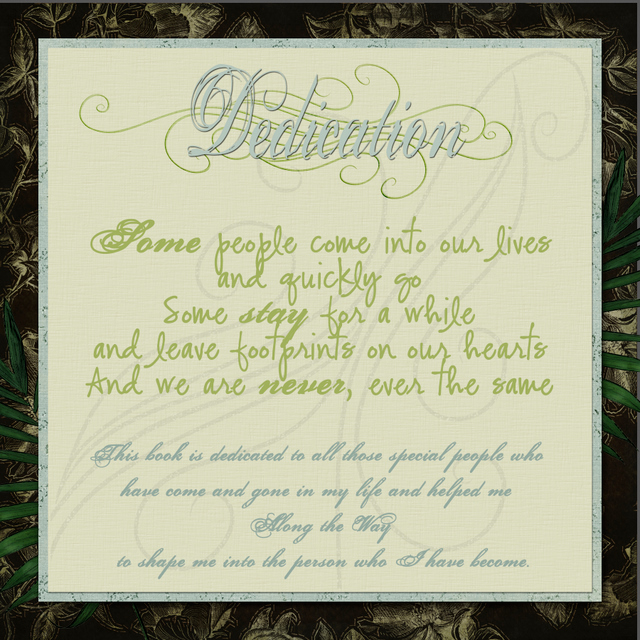 Dedication
Some people come into our lives
and quickly go
Some stay for a while
and leave footprints on our hearts
And we are never, ever the same
This book is dedicated to all those special people who
have come and gone in my life and helped me
Along the Way
to shape me into the person who I have become.